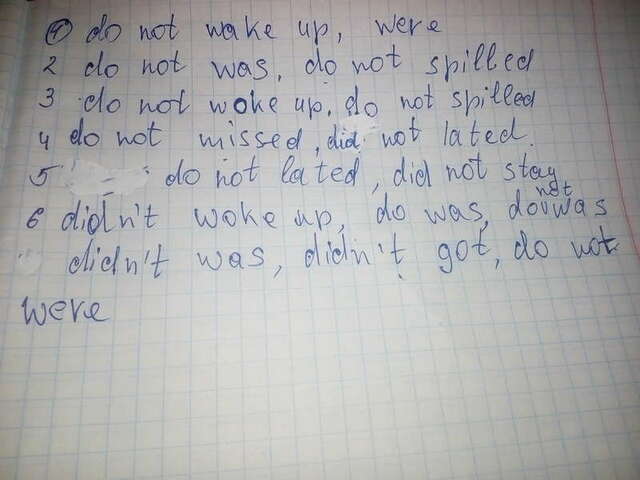 1 do not wake up, were
2 do not was, do not spilled
3 do not woke up, do not spilled
4 do not missed, did not lated.
5 do not lated, did not stay
6 didn't woke up, do was, do not was
didn't was, didn't got, do not
were